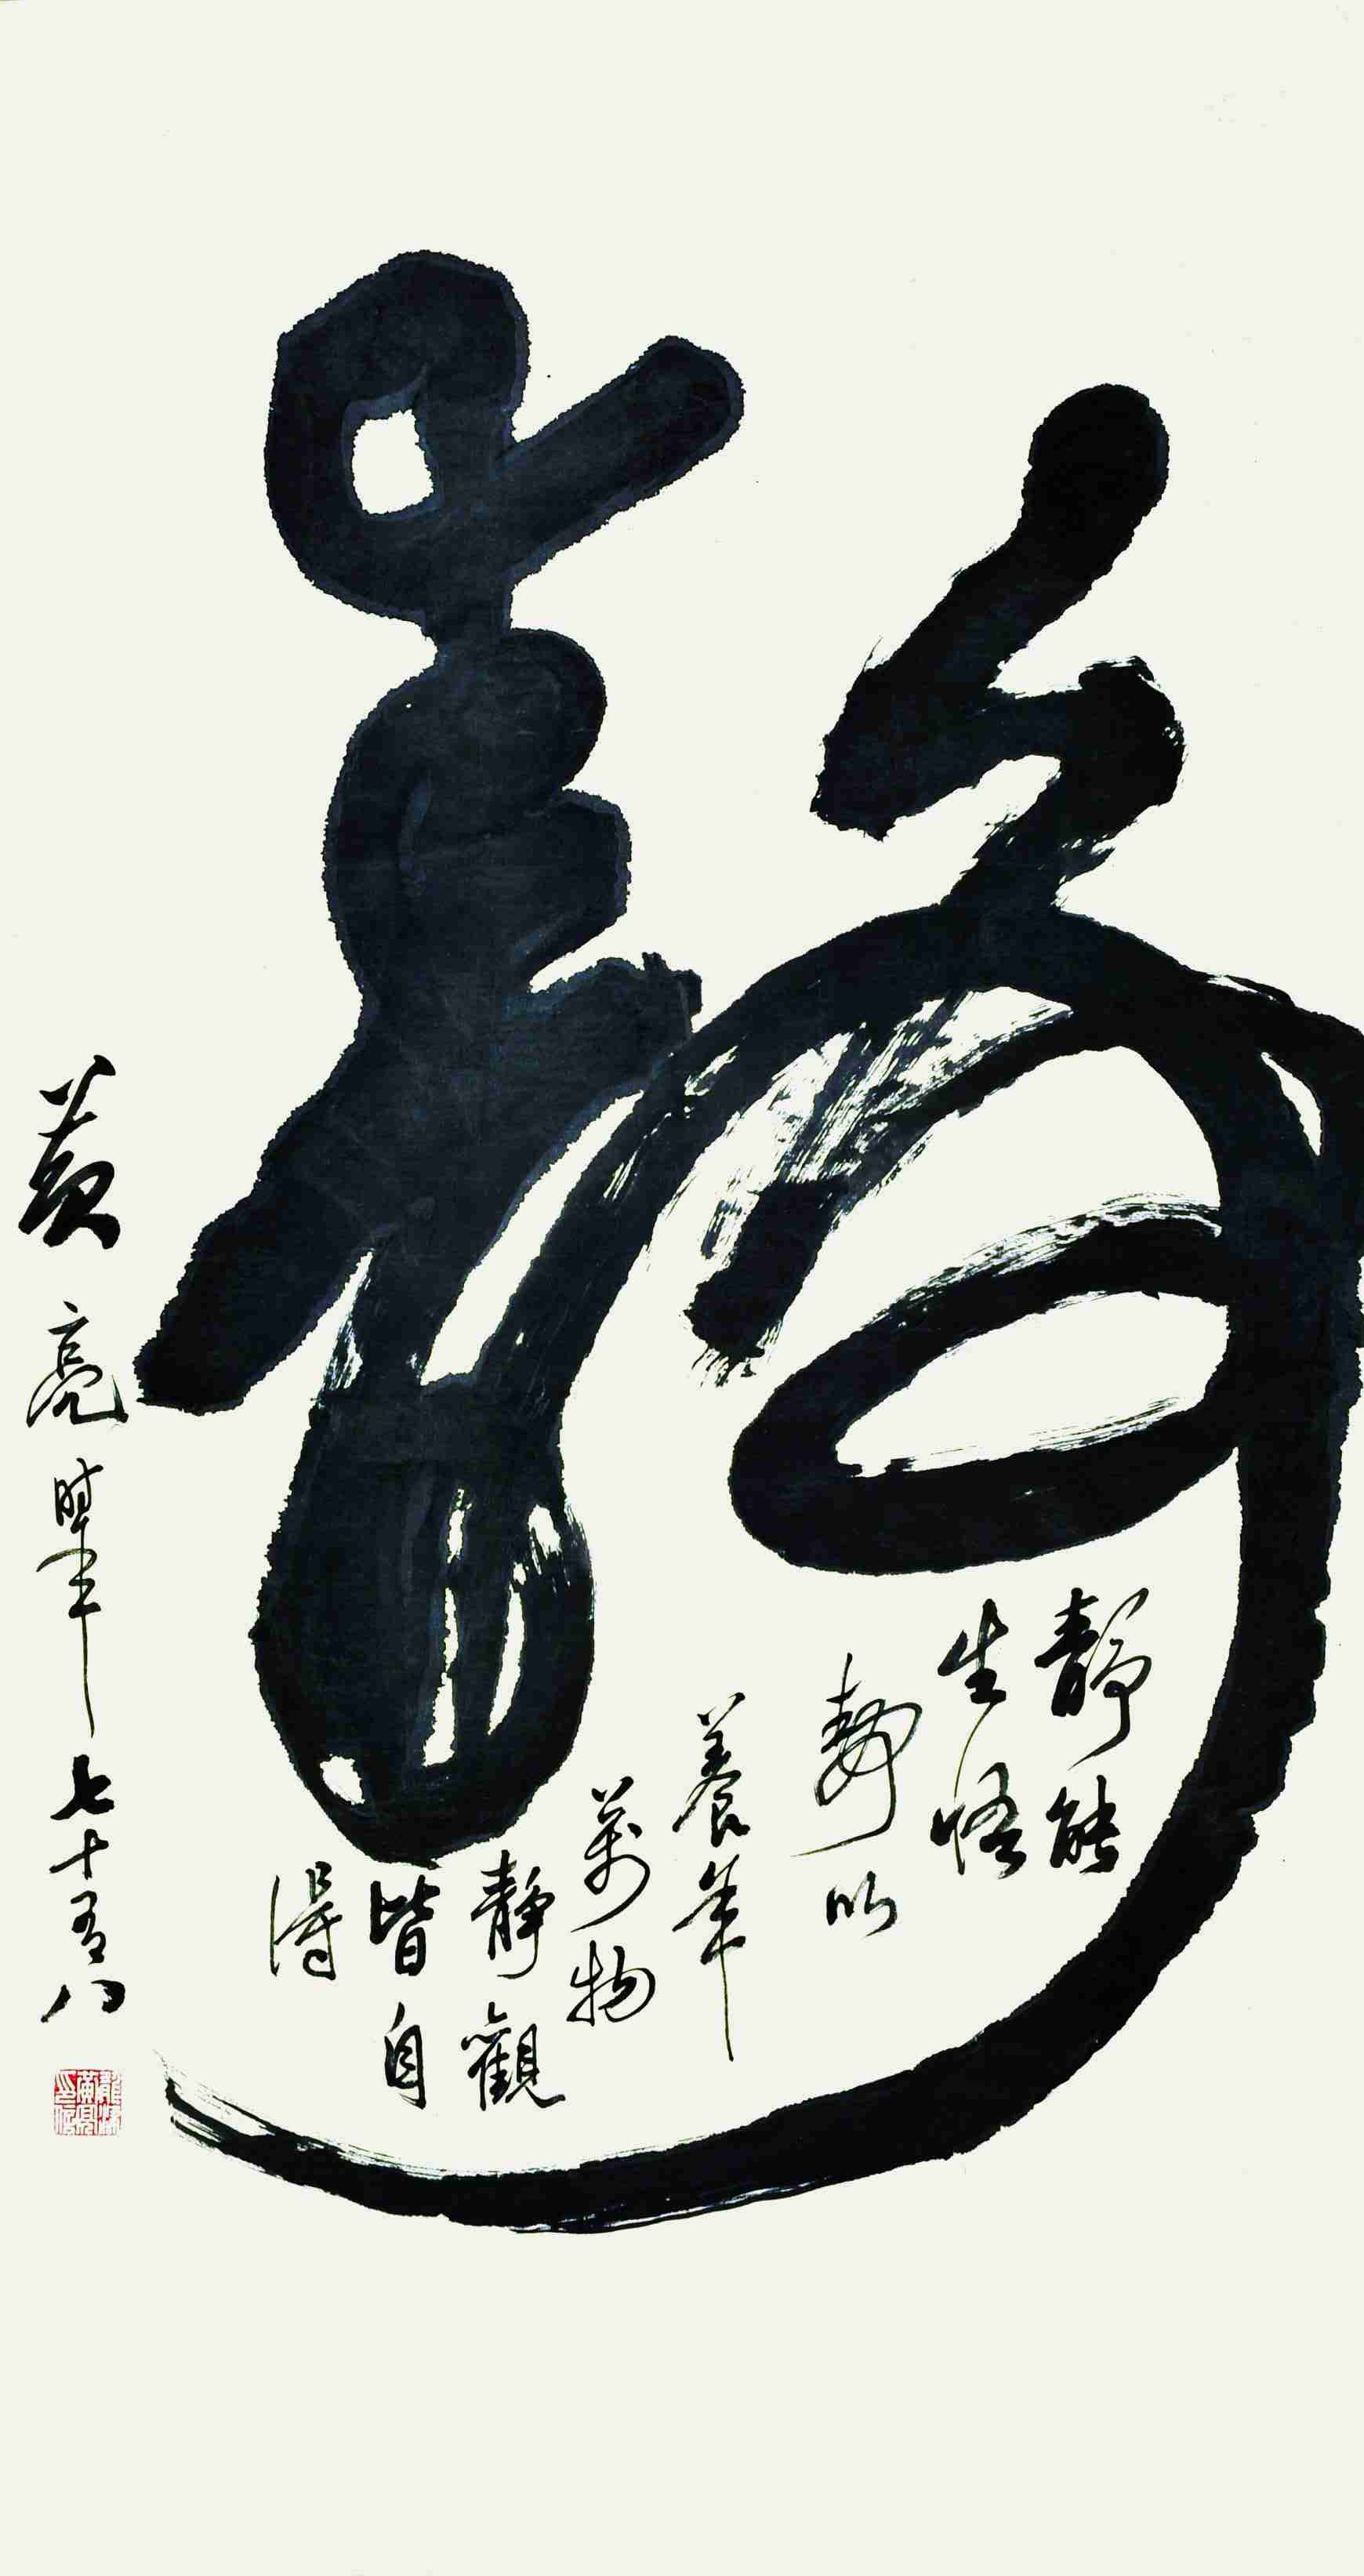 靜
靜能
生悟
靜以
養年
萬物
靜觀
皆自
得
黃亮時年七十有八